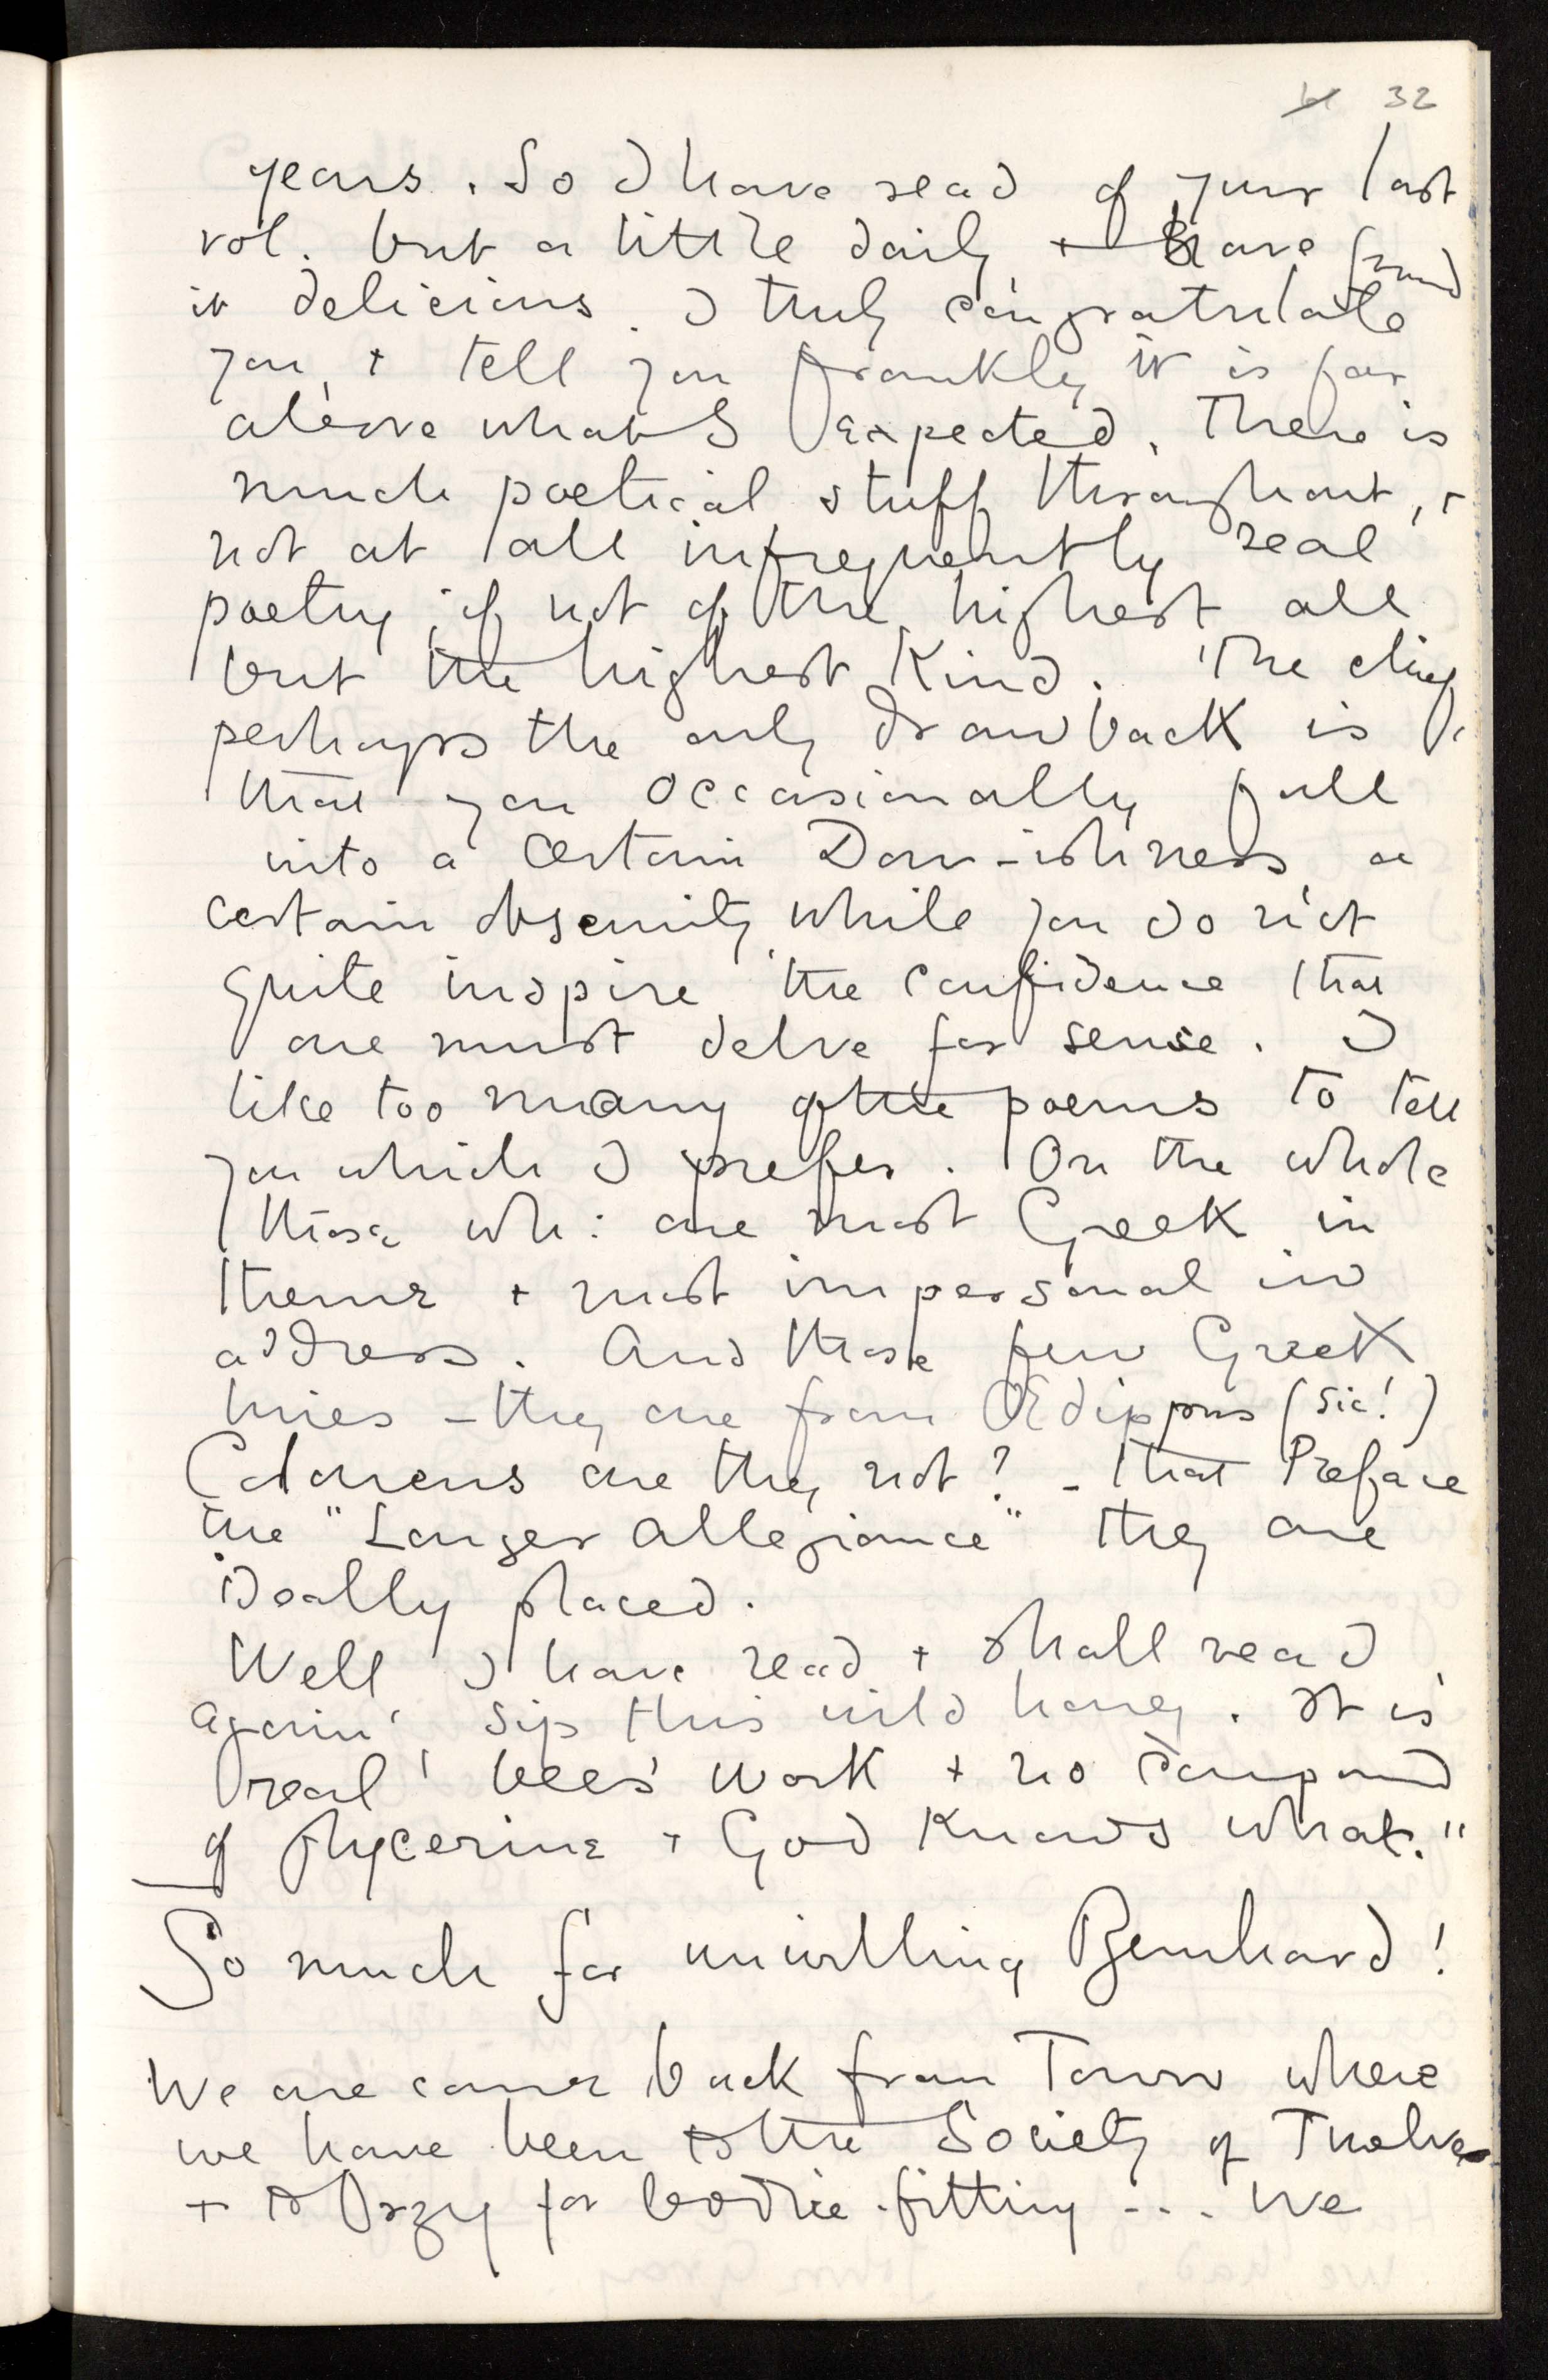 32
years. So I have read of your last
vol. but a little daily, + have found
it delicious. I truly congratulate
you, + tell you frankly it is far
above what I expected. There is
much poetical stuff throughout, +
not at all infrequently real
poetry, if not of the highest all
but the highest kind. The chief,
perhaps the only drawback is
that you occasionally fall
into a certain Donn-ishness, a
certain obscurity, while you do not
quite inspire the confidence that
one must delve for sense. I
like too many of the poems to tell
you which I prefer. On the whole
those wh: are most Greek in
theme + most impersonal in
address. And those few Greek
lines – they are from Œdippus (sic!)
Coloneus are they not? – that Preface
the "Longer Allegiance" they are
ideally placed.
Well I have read + shall read
again, sip this wild honey. It is
real bees' work + no compound
of glycerine + God knows what."
So much for unwilling Bernhard!
We are come back from Town where
we have been to the Society of Twelve
+ to Orzy for bodice-fitting ... We